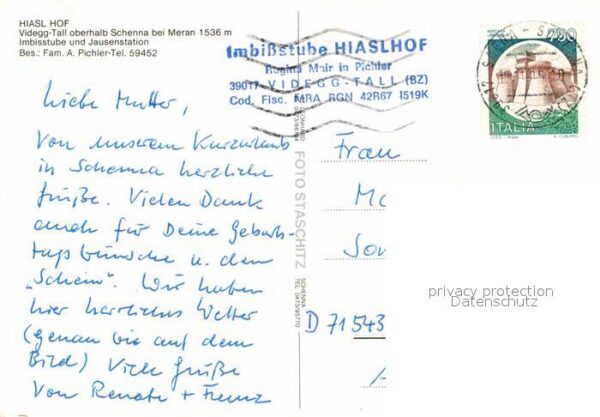 HIASL HOF
Videgg-Tall oberhalb Schenna bei Meran 1536 m
Imbisstube und Jausenstation
Bes.: Fam. A. Pichler-Tel. 59452
Imbißstube HIASLHOF
Regina Mair in Pichler
39017 VIDEGG-TALL (BZ)
Cod. Fisc. MRA RGN 42R67 I519K
750
ITALIA
Liebe Mutter,
Von unserem Kurzurlaub
in Schenna herzliche
Grüße. Vielen Dank
auch für Deine Geburts-
tagswünsche u. den
„Schein". Wir haben
hier herrliches Wetter
(genau wie auf dem
Bild) Viele Grüße
Von Renate + Franz
FOTO STASCHITZ
SCHENNA
Frau
D 71543
privacy protection
Datenschutz